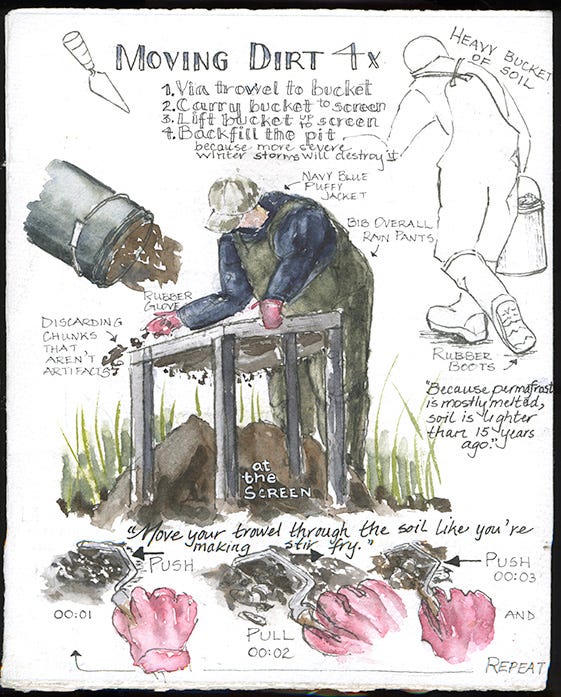 MOVING DIRT 4x
1. Via trowel to bucket
2. Carry bucket to screen
3. Lift bucket up to screen
4. Backfill the pit
because more severe
winter storms will destroy it
HEAVY BUCKET
OF SOIL
NAVY BLUE
PUFFY
JACKET
BIB OVERALL
RAIN PANTS
RUBBER
GLOVE
DISCARDING
CHUNKS
THAT
AREN'T
ARTIFACTS
RUBBER
BOOTS
"Because permafrost
is mostly melted,
soil is lighter
than 15 years
ago."
at
the
SCREEN
"Move your trowel through the soil like you're
making stir fry."
PUSH
00:01
PULL
00:02
PUSH
00:03
AND
REPEAT